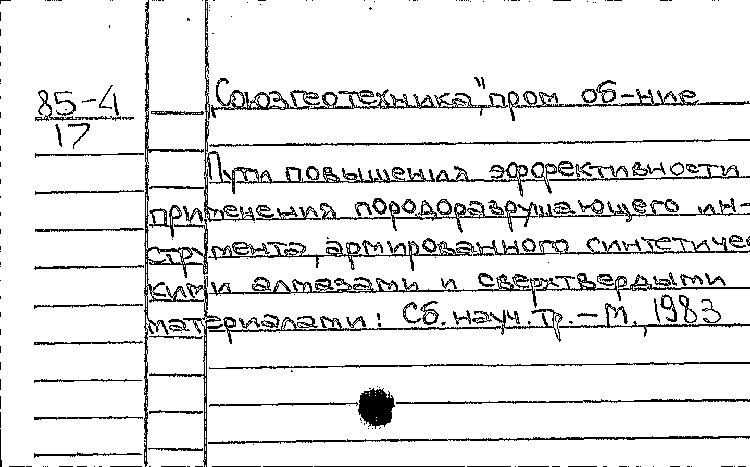 85-4
17
„Союзгеотехника", пром об-ние
Пути повышения эффективности
применения породоразрушающего ин-
струмента, армированного синтетичес
кими алмазами и сверхтвердыми
материалами: Сб. науч. тр. - М., 1983